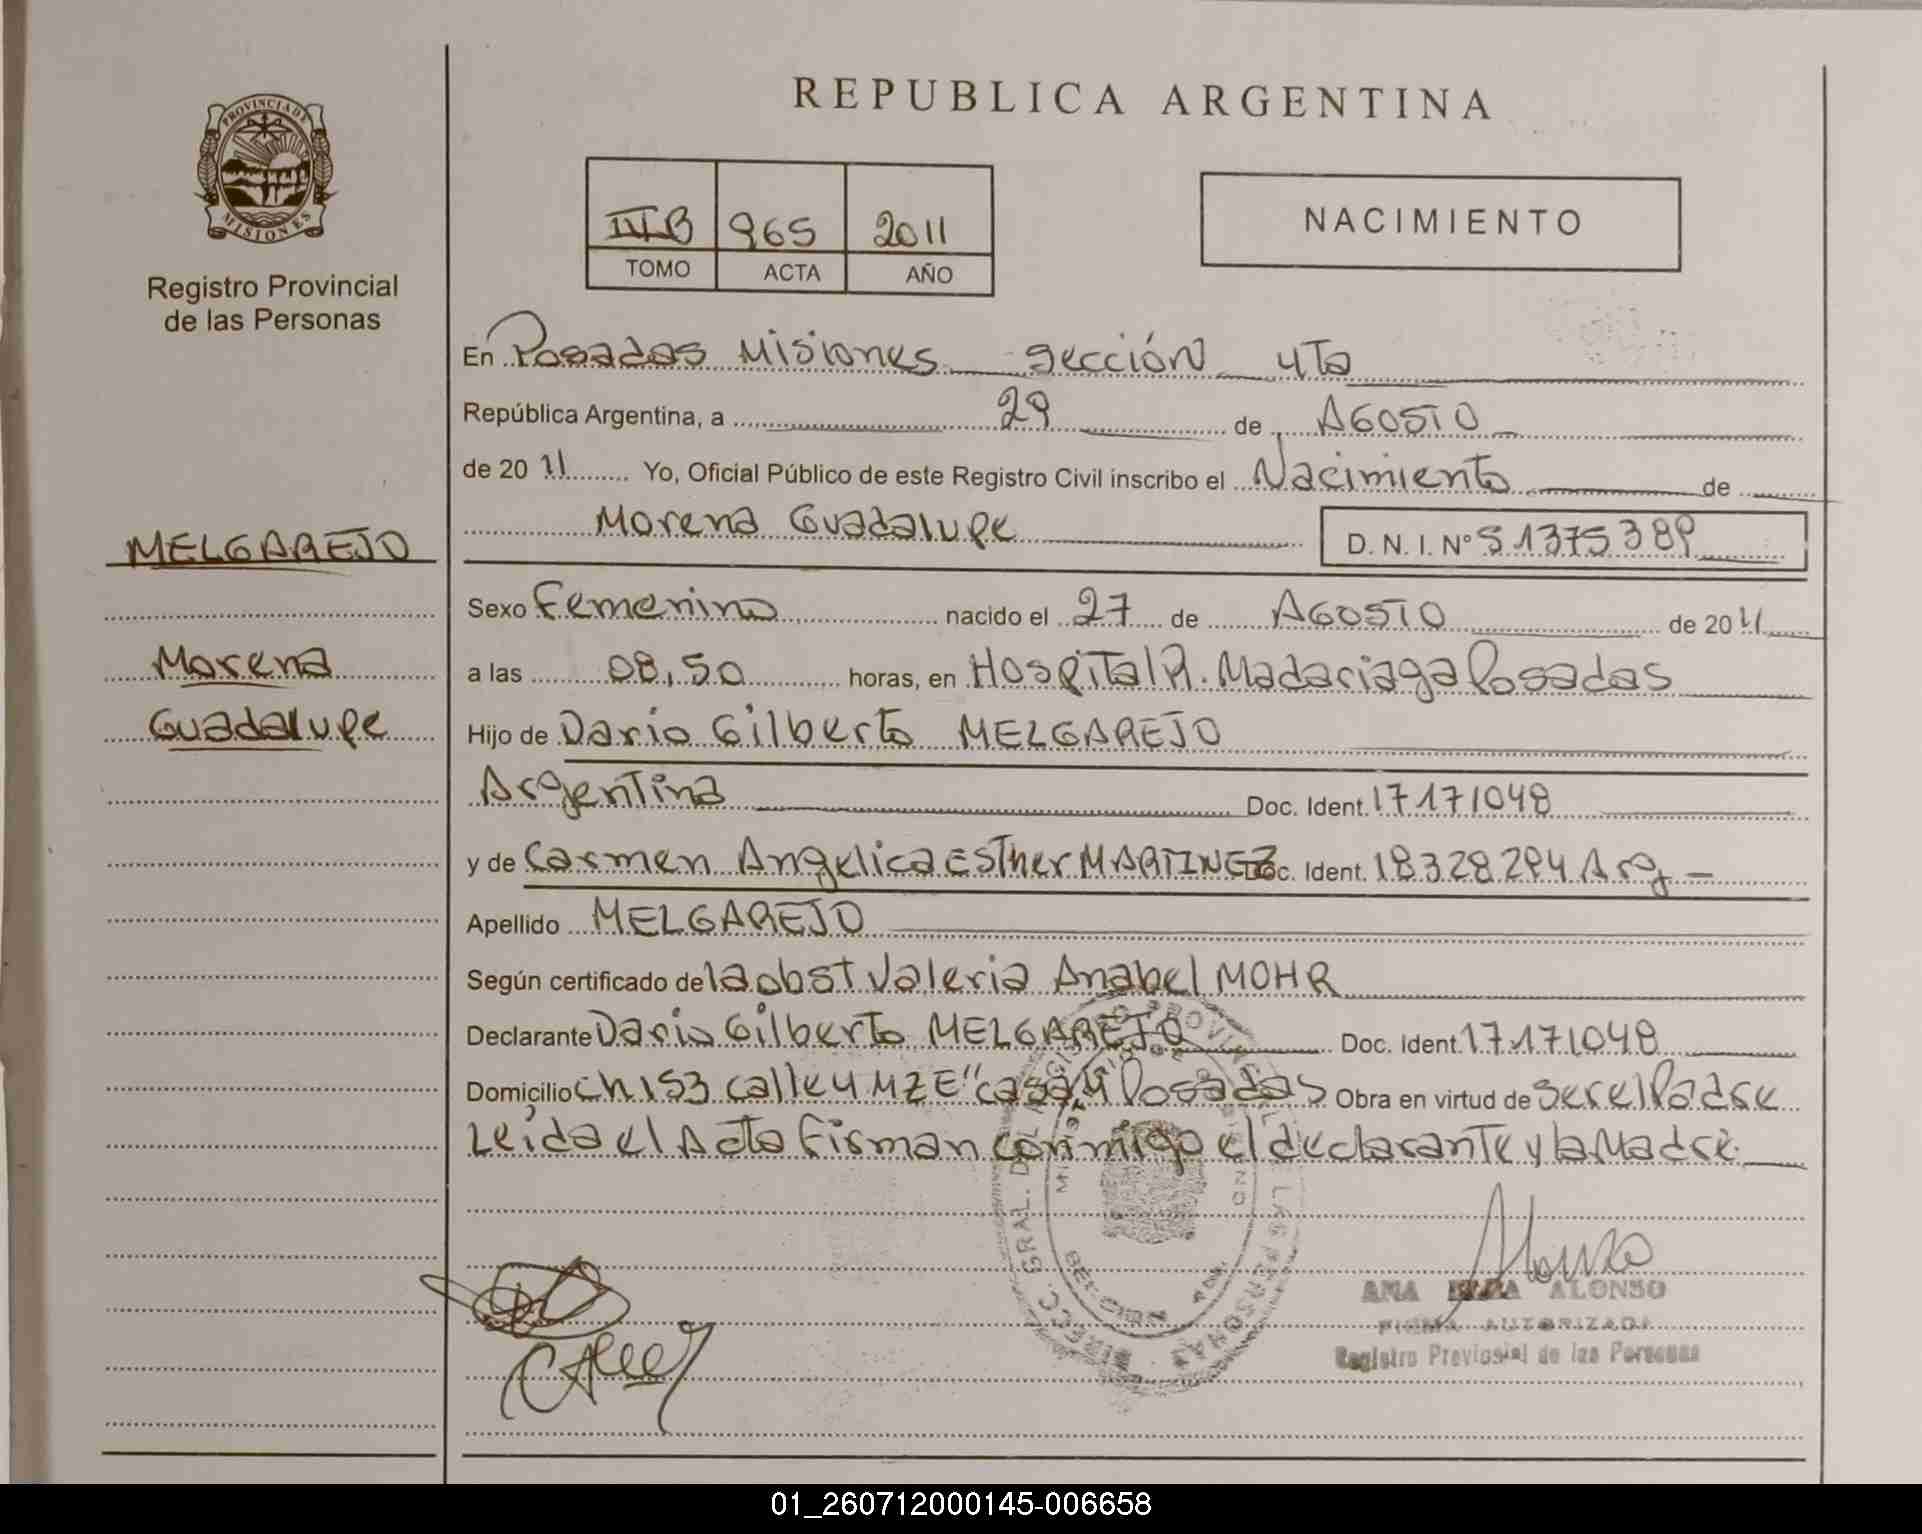 REPUBLICA ARGENTINA
PROVINCIA DE
MISIONES
Registro Provincial
de las Personas
965 2011
TOMO ACTA AÑO
NACIMIENTO
En Posadas Misiones Sección 4ta
República Argentina, a 29 de AGOSTO
de 2011 Yo, Oficial Público de este Registro Civil inscribo el Nacimiento de
Morena Guadalupe D. N. I. Nº 51375389
MELGAREJO
Sexo Femenino nacido el 27 de AGOSTO de 2011
Morena
a las 08,50 horas, en Hospital R. Madariaga Posadas
Guadalupe
Hijo de Dario Gilberto MELGAREJO
Argentina Doc. Ident. 17171048
y de Carmen Angelica Esther MARTINEZ Doc. Ident. 18328294 Arg
Apellido MELGAREJO
Según certificado de la obst Valeria Anabel MOHR
Declarante Dario Gilberto MELGAREJO Doc. Ident. 17171048
Domicilio Ch 153 calle 4 MZ E" casa Posadas Obra en virtud de ser el Padre
Leida el Acta firman conmigo el declarante y la Madre.
Alonso
ANA ALONSO
FIRMA AUTORIZADA
Registro Provincial de las Personas
01_260712000145-006658